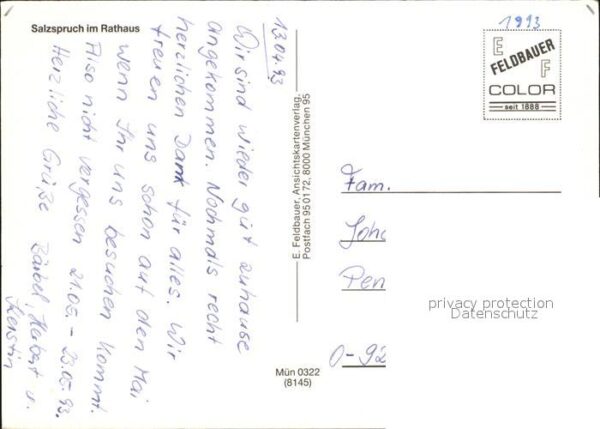 Salzspruch im Rathaus
13.04.93
Wir sind wieder gut zuhause
angekommen. Nochmals recht
herzlichen Dank für alles. Wir
freuen uns schon auf den Mai
wenn Ihr uns besuchen kommt.
Also nicht vergessen 21.05. - 23.05.93.
Herzliche Grüße Bärbel, Herbert u.
Kerstin
E. Feldbauer, Ansichtskartenverlag,
Postfach 95 01 72, 8000 München 95
Mün 0322
(8145)
1993
E
FELDBAUER
F
COLOR
seit 1888
Fam.
Joha
Pen
O-92
privacy protection
Datenschutz